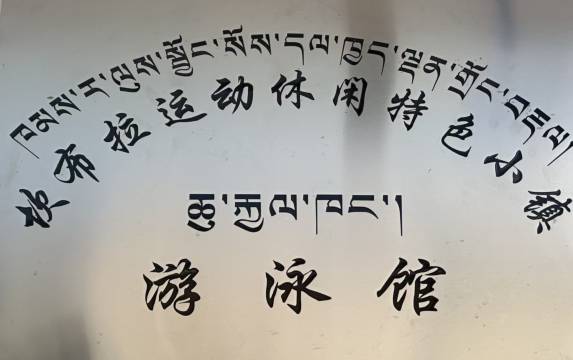 ཁམས་ར་ལུས་སྦྱོང་སོས་དལ་ཁྱད་ལྡན་གྲོང་བརྡལ།
坎布拉运动休闲特色小镇
ཆུ་རྐྱལ་ཁང་།
游泳馆